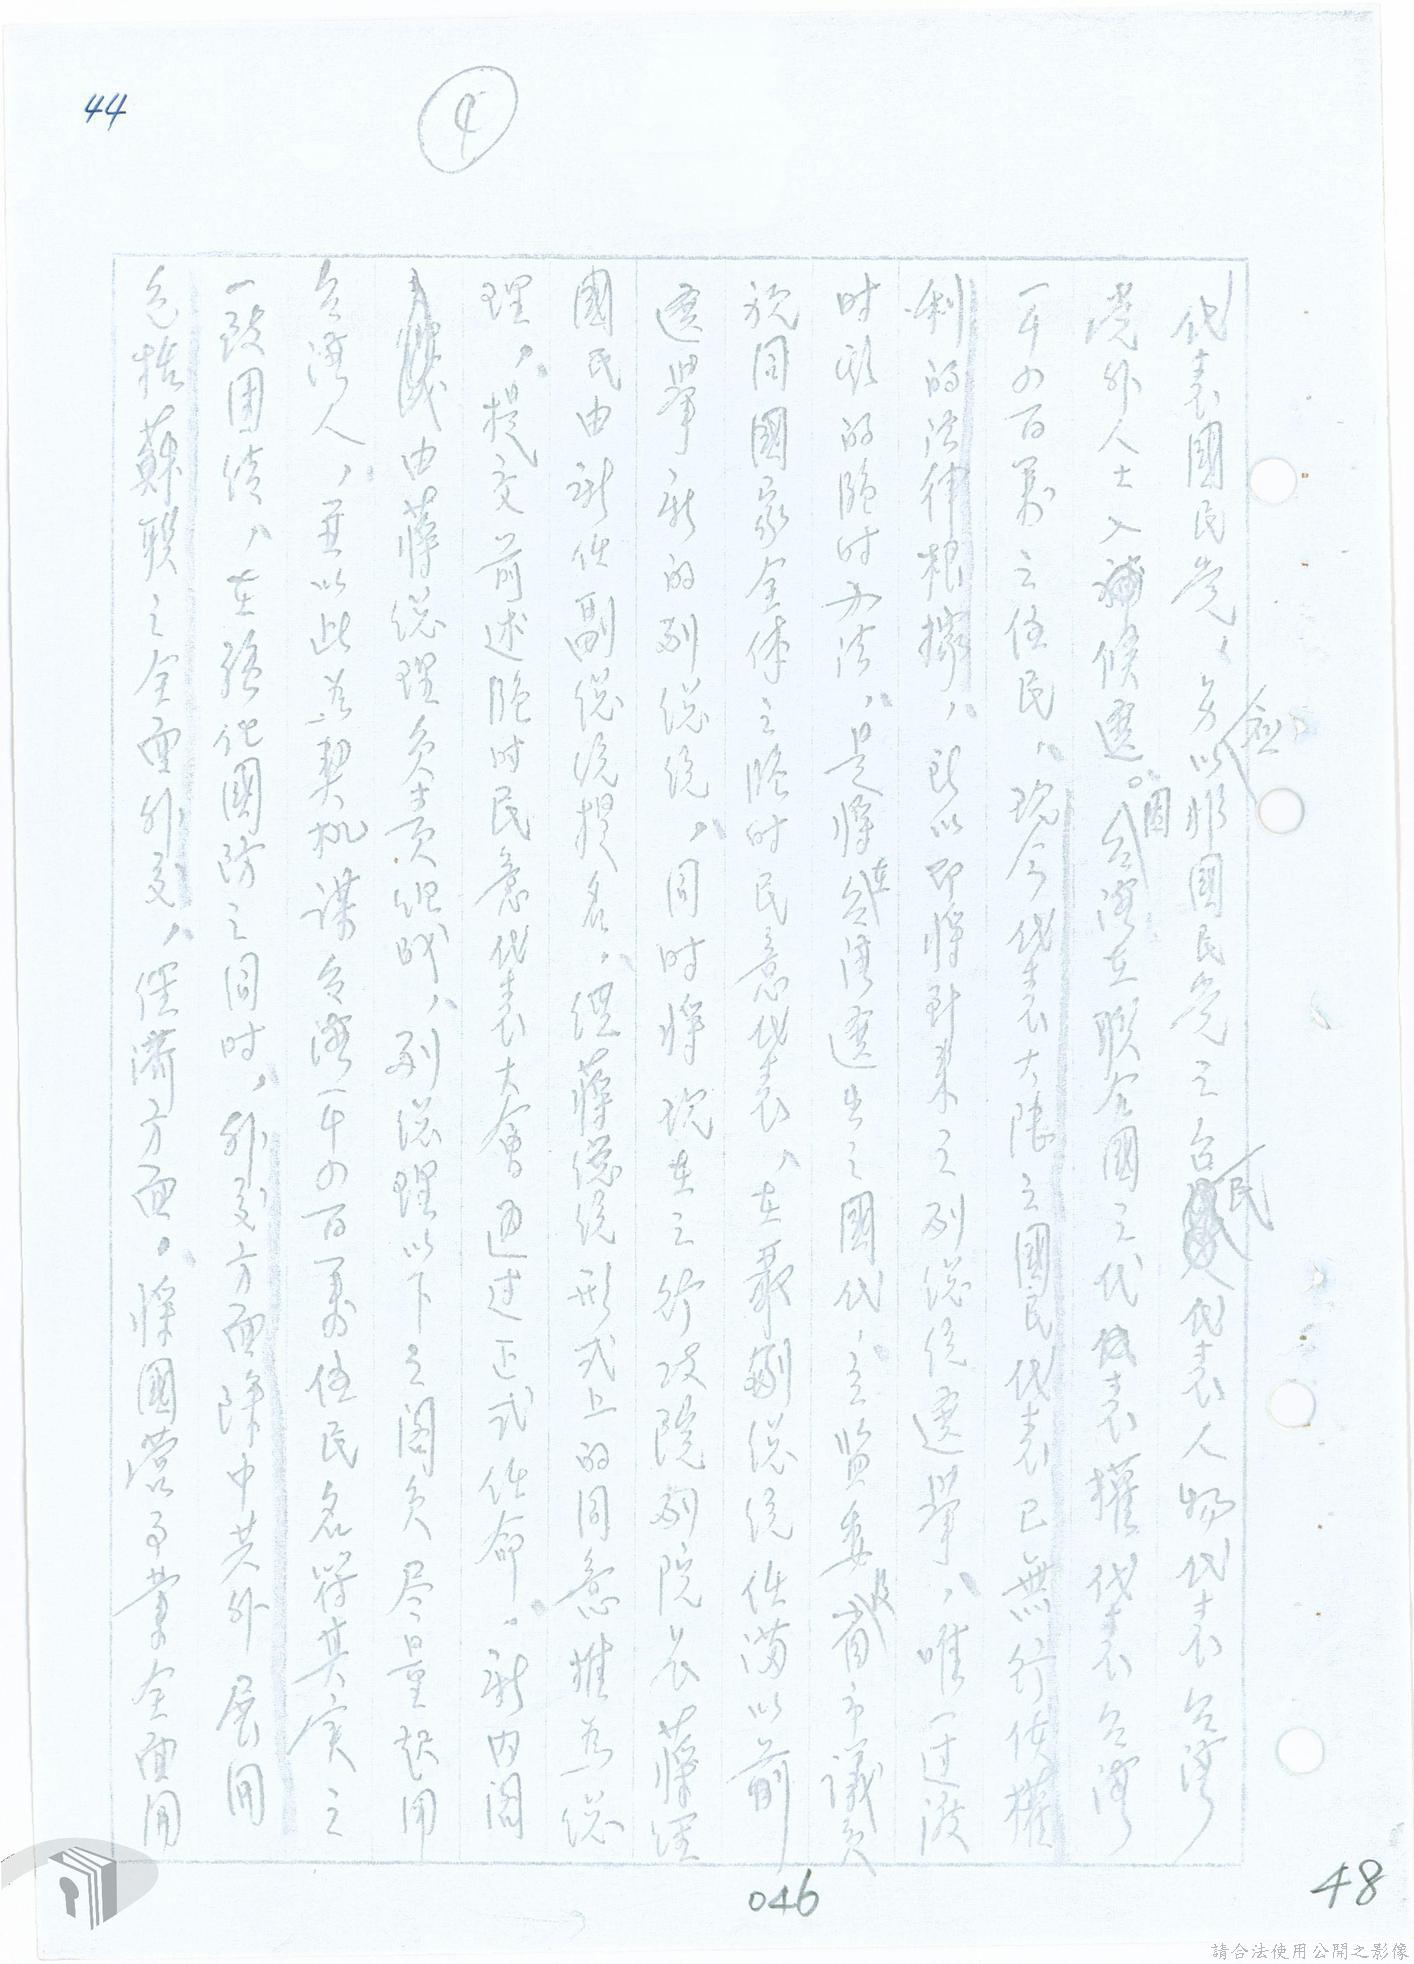 44
4
代表國民党，另以非國民党之台民代表人物代表台湾
应
党外人士入補候選。因台湾在联合國之代表權代表台湾
一千四百萬之住民，現今代表大陸之國民代表已無行使權
利的法律根據，所以即將到來之副総統選舉，唯一过渡
时期的臨时办法，是將在台湾選出之國代，立監委及省市議员
視同國家全体之臨时民意代表，在最副総統任滿以前
選舉新的副総統，同时將現在之行政院副院长蒋経
國氏由新任副総統提名，経蒋総統形式上的同意推為総
理，提交前述臨时民意代表大會通过正式任命。新内阁
由蒋総理负责组成，副総理以下之阁员尽量起用
台湾人，並以此為契机謀台湾一千四百萬住民名符其实之
一致团结，在强化國防之同时，外交方面除中共外展開
包括蘇联之全面外交，経濟方面，將國营事業全面開
046
48
請合法使用公開之影像